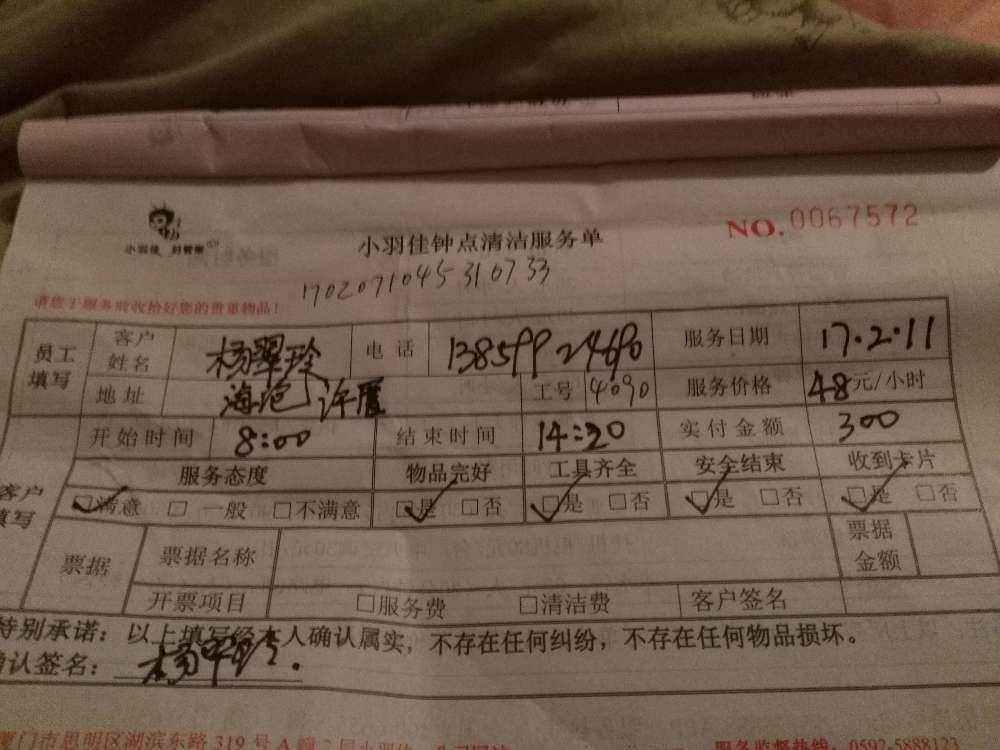 小羽佳 好管家
小羽佳钟点清洁服务单
NO.0067572
170207104531073​3
请您于服务前收拾好您的贵重物品!
员工填写 客户姓名 杨翠玲 电话 13859924690 服务日期 17.2.11
地址 海沧 许厝 工号 4090 服务价格 48元/小时
客户填写 开始时间 8:00 结束时间 14:20 实付金额 300
服务态度 物品完好 工具齐全 安全结束 收到卡片
☑满意 □一般 □不满意 ☑是 □否 ☑是 □否 ☑是 □否 ☑是 □否
票据 票据名称 票据金额
开票项目 □服务费 □清洁费 客户签名
特别承诺：以上填写经本人确认属实，不存在任何纠纷，不存在任何物品损坏。
确认签名：杨翠玲.
厦门市思明区湖滨东路 319 号 A 幢 2 层小羽佳 服务监督热线：0592-5888123